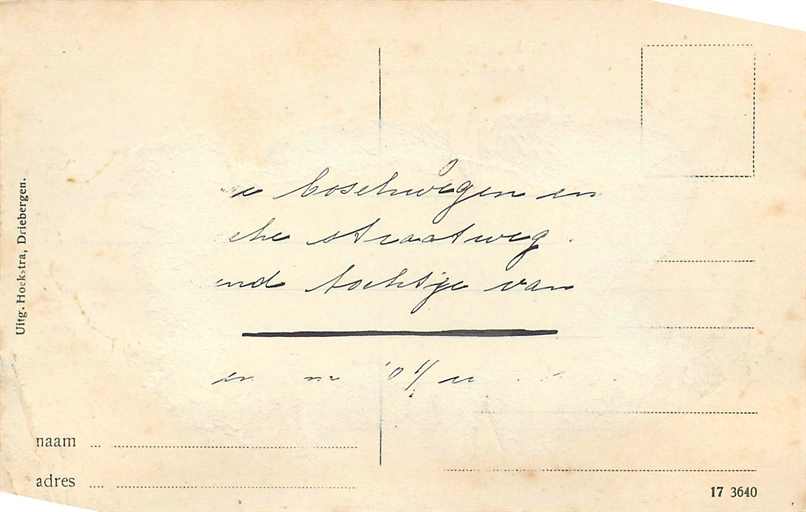 Uitg. Hoekstra, Driebergen.
boschwegen en
che straatweg.
end tochtje van
naam
adres
17 3640